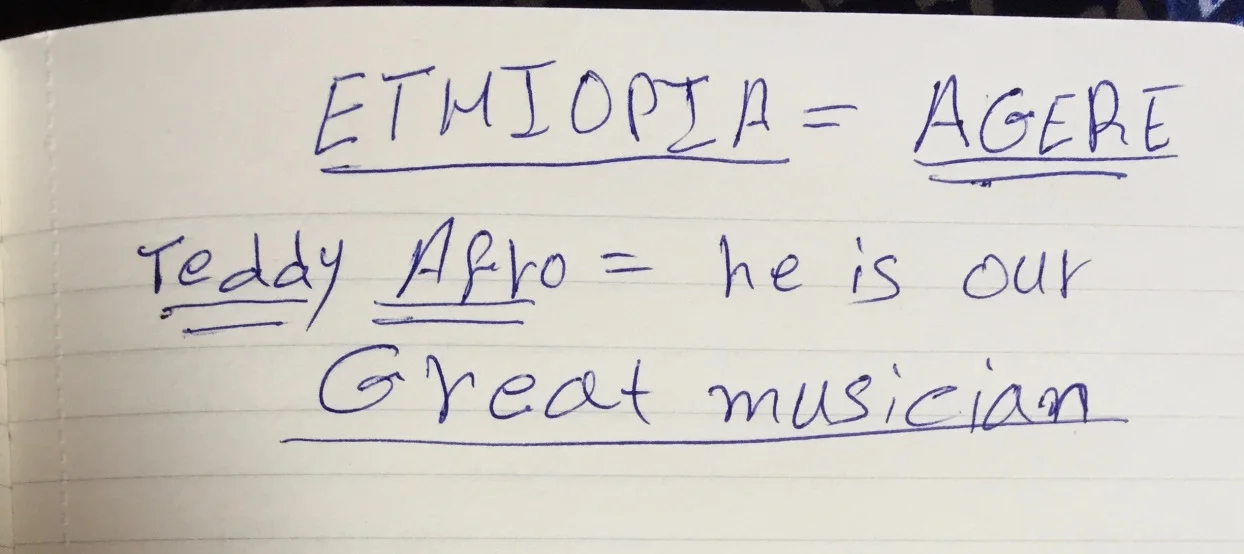 ETHIOPIA = AGERE
Teddy Afro = he is our
Great musician